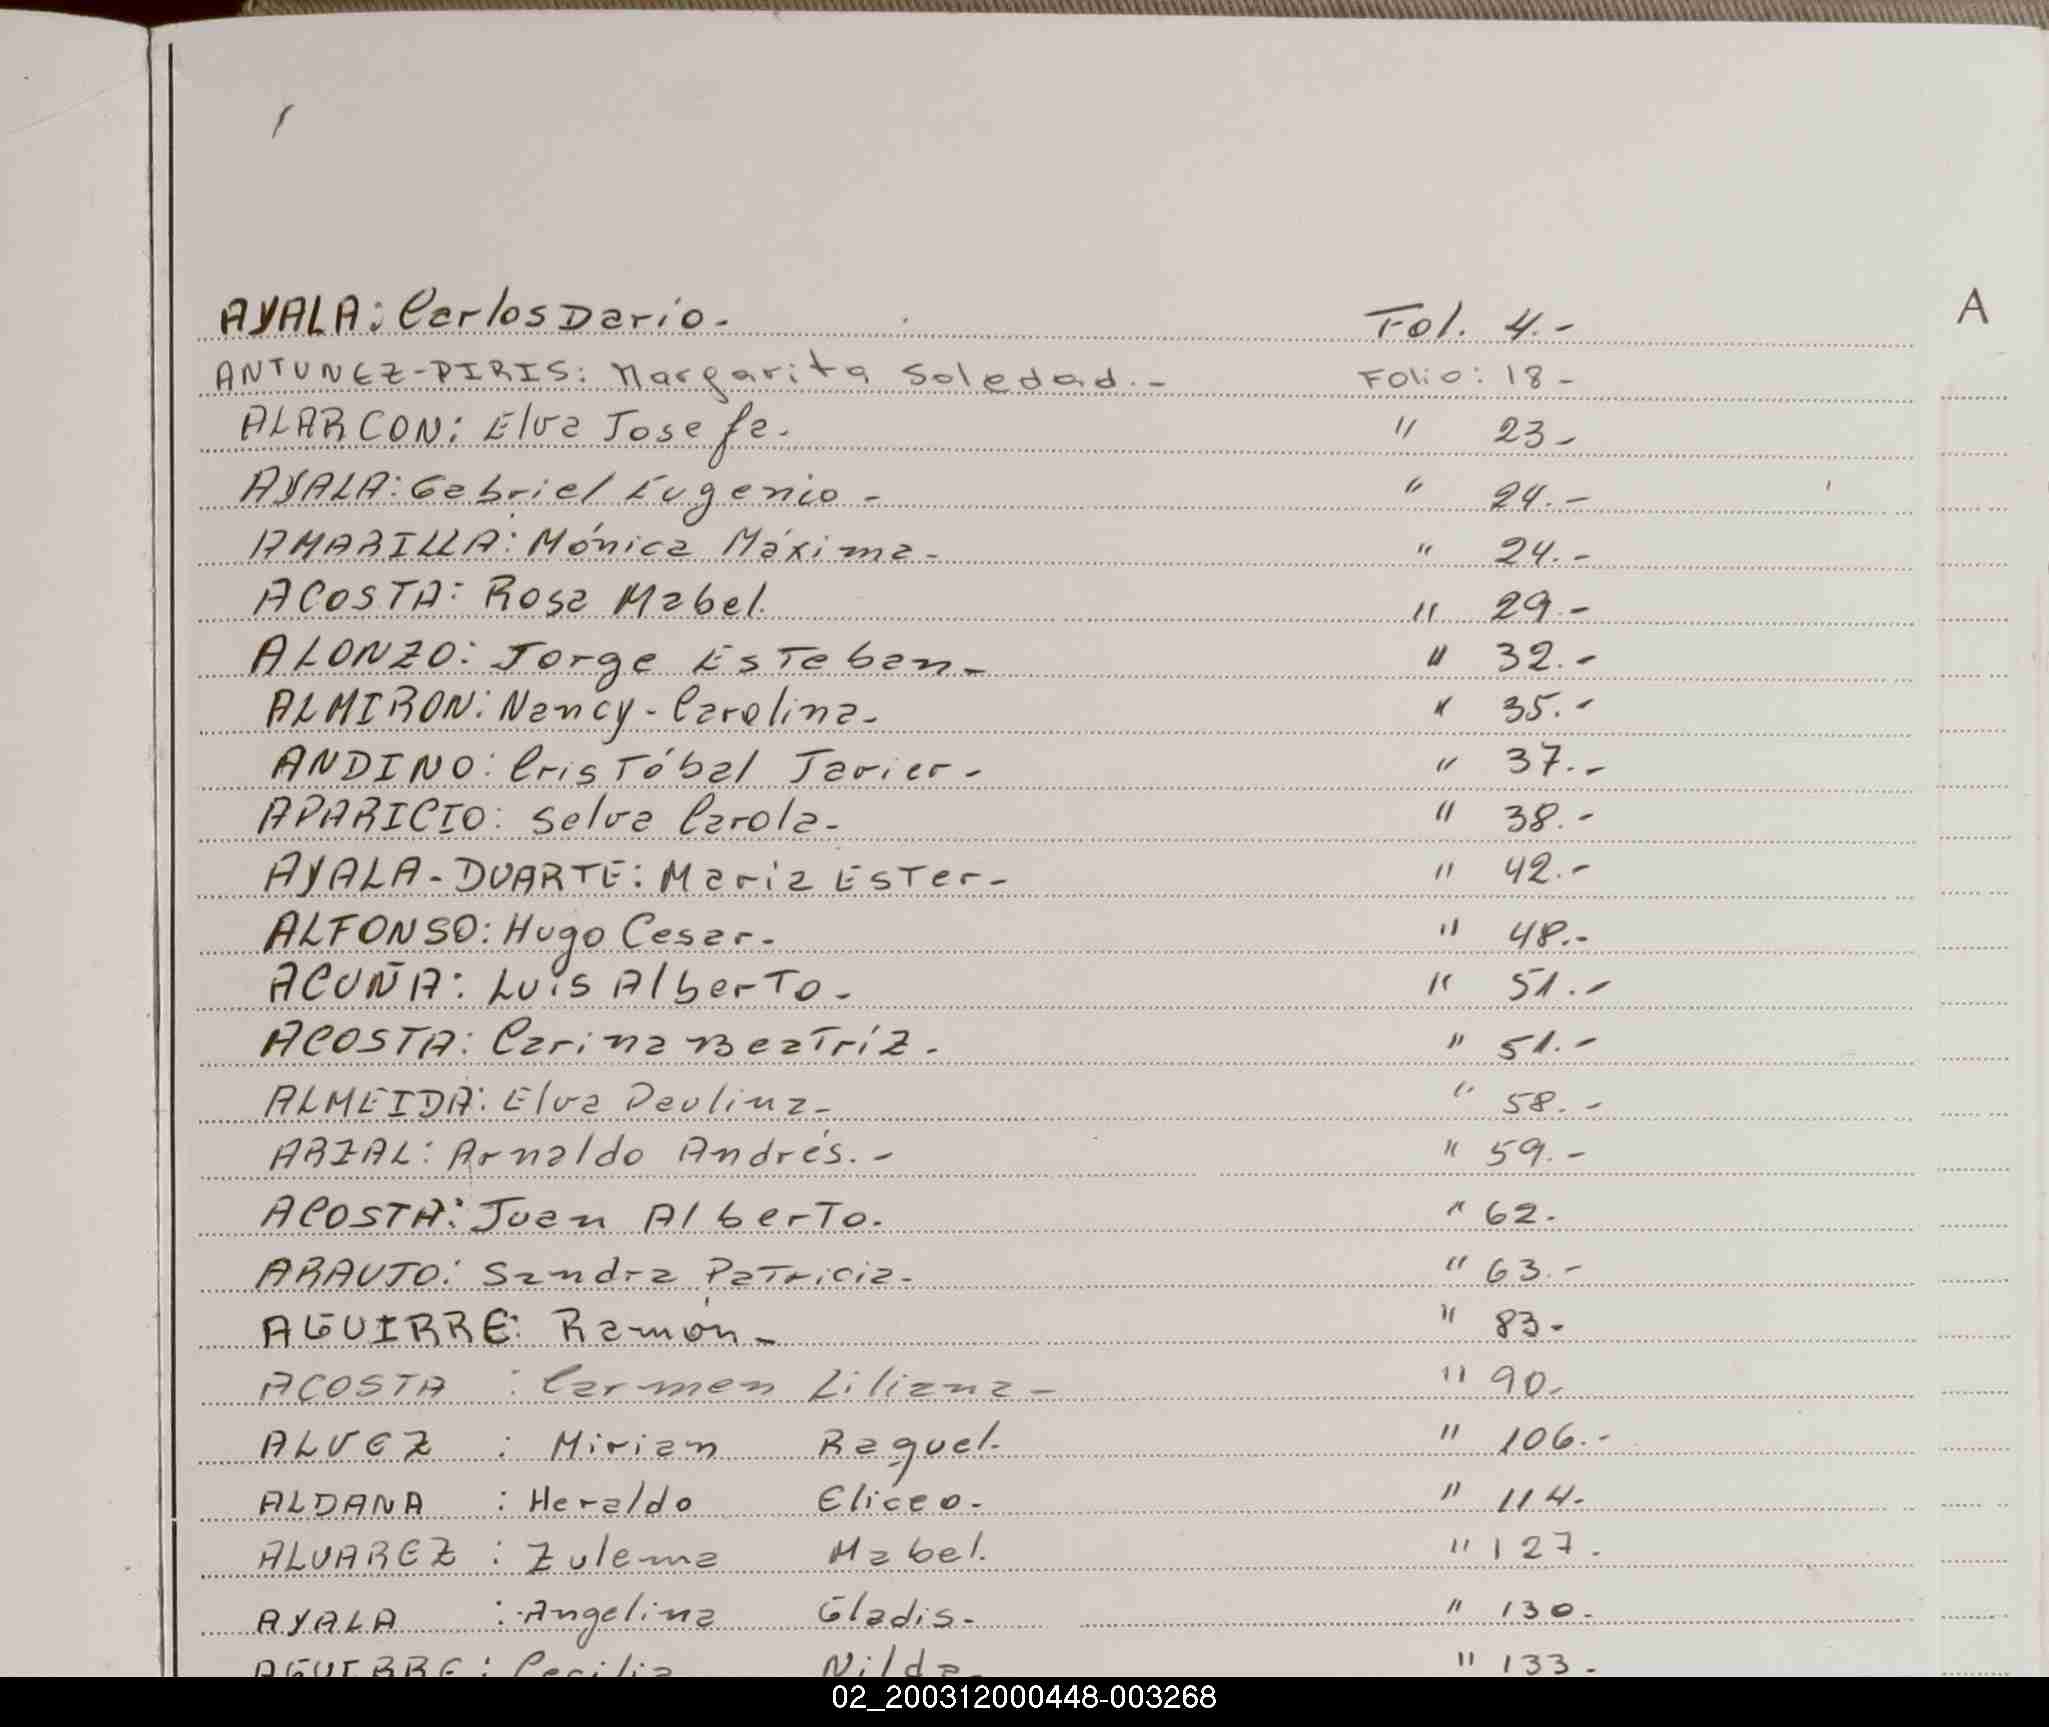 A
AYALA: Carlos Dario.- Fol. 4.-
ANTUNEZ-PIRIS: Margarita Soledad.- Folio: 18-
ALARCON: Elva Josefa. " 23-
AYALA: Gabriel Eugenio- " 24.-
AMARILLA: Mónica Máxima- " 24.-
ACOSTA: Rosa Mabel. " 29.-
ALONZO: Jorge Esteban- " 32.-
ALMIRON: Nancy-Carolina- " 35.-
ANDINO: Cristóbal Javier- " 37.-
APARICIO: Selva Carola- " 38.-
AYALA-DUARTE: Maria Ester- " 42.-
ALFONSO: Hugo Cesar- " 48.-
ACUÑA: Luis Alberto- " 51.-
ACOSTA: Carina Beatríz. " 51.-
ALMEIDA: Elva Paulina- " 58.-
ARZAL: Arnaldo Andrés.- " 59.-
ACOSTA: Juan Alberto. " 62.
ARAUJO: Sandra Patricia- " 63.-
AGUIRRE: Ramón- " 83-
ACOSTA : Carmen Liliana- " 90-
ALVEZ : Mirian Raquel. " 106.-
ALDANA : Heraldo Eliceo- " 114-
ALVAREZ : Zulema Mabel. " 127.
AYALA : Angelina Gladis- " 130-
AGUIRRE: Cecilia Nilda- " 133-
02_200312000448-003268